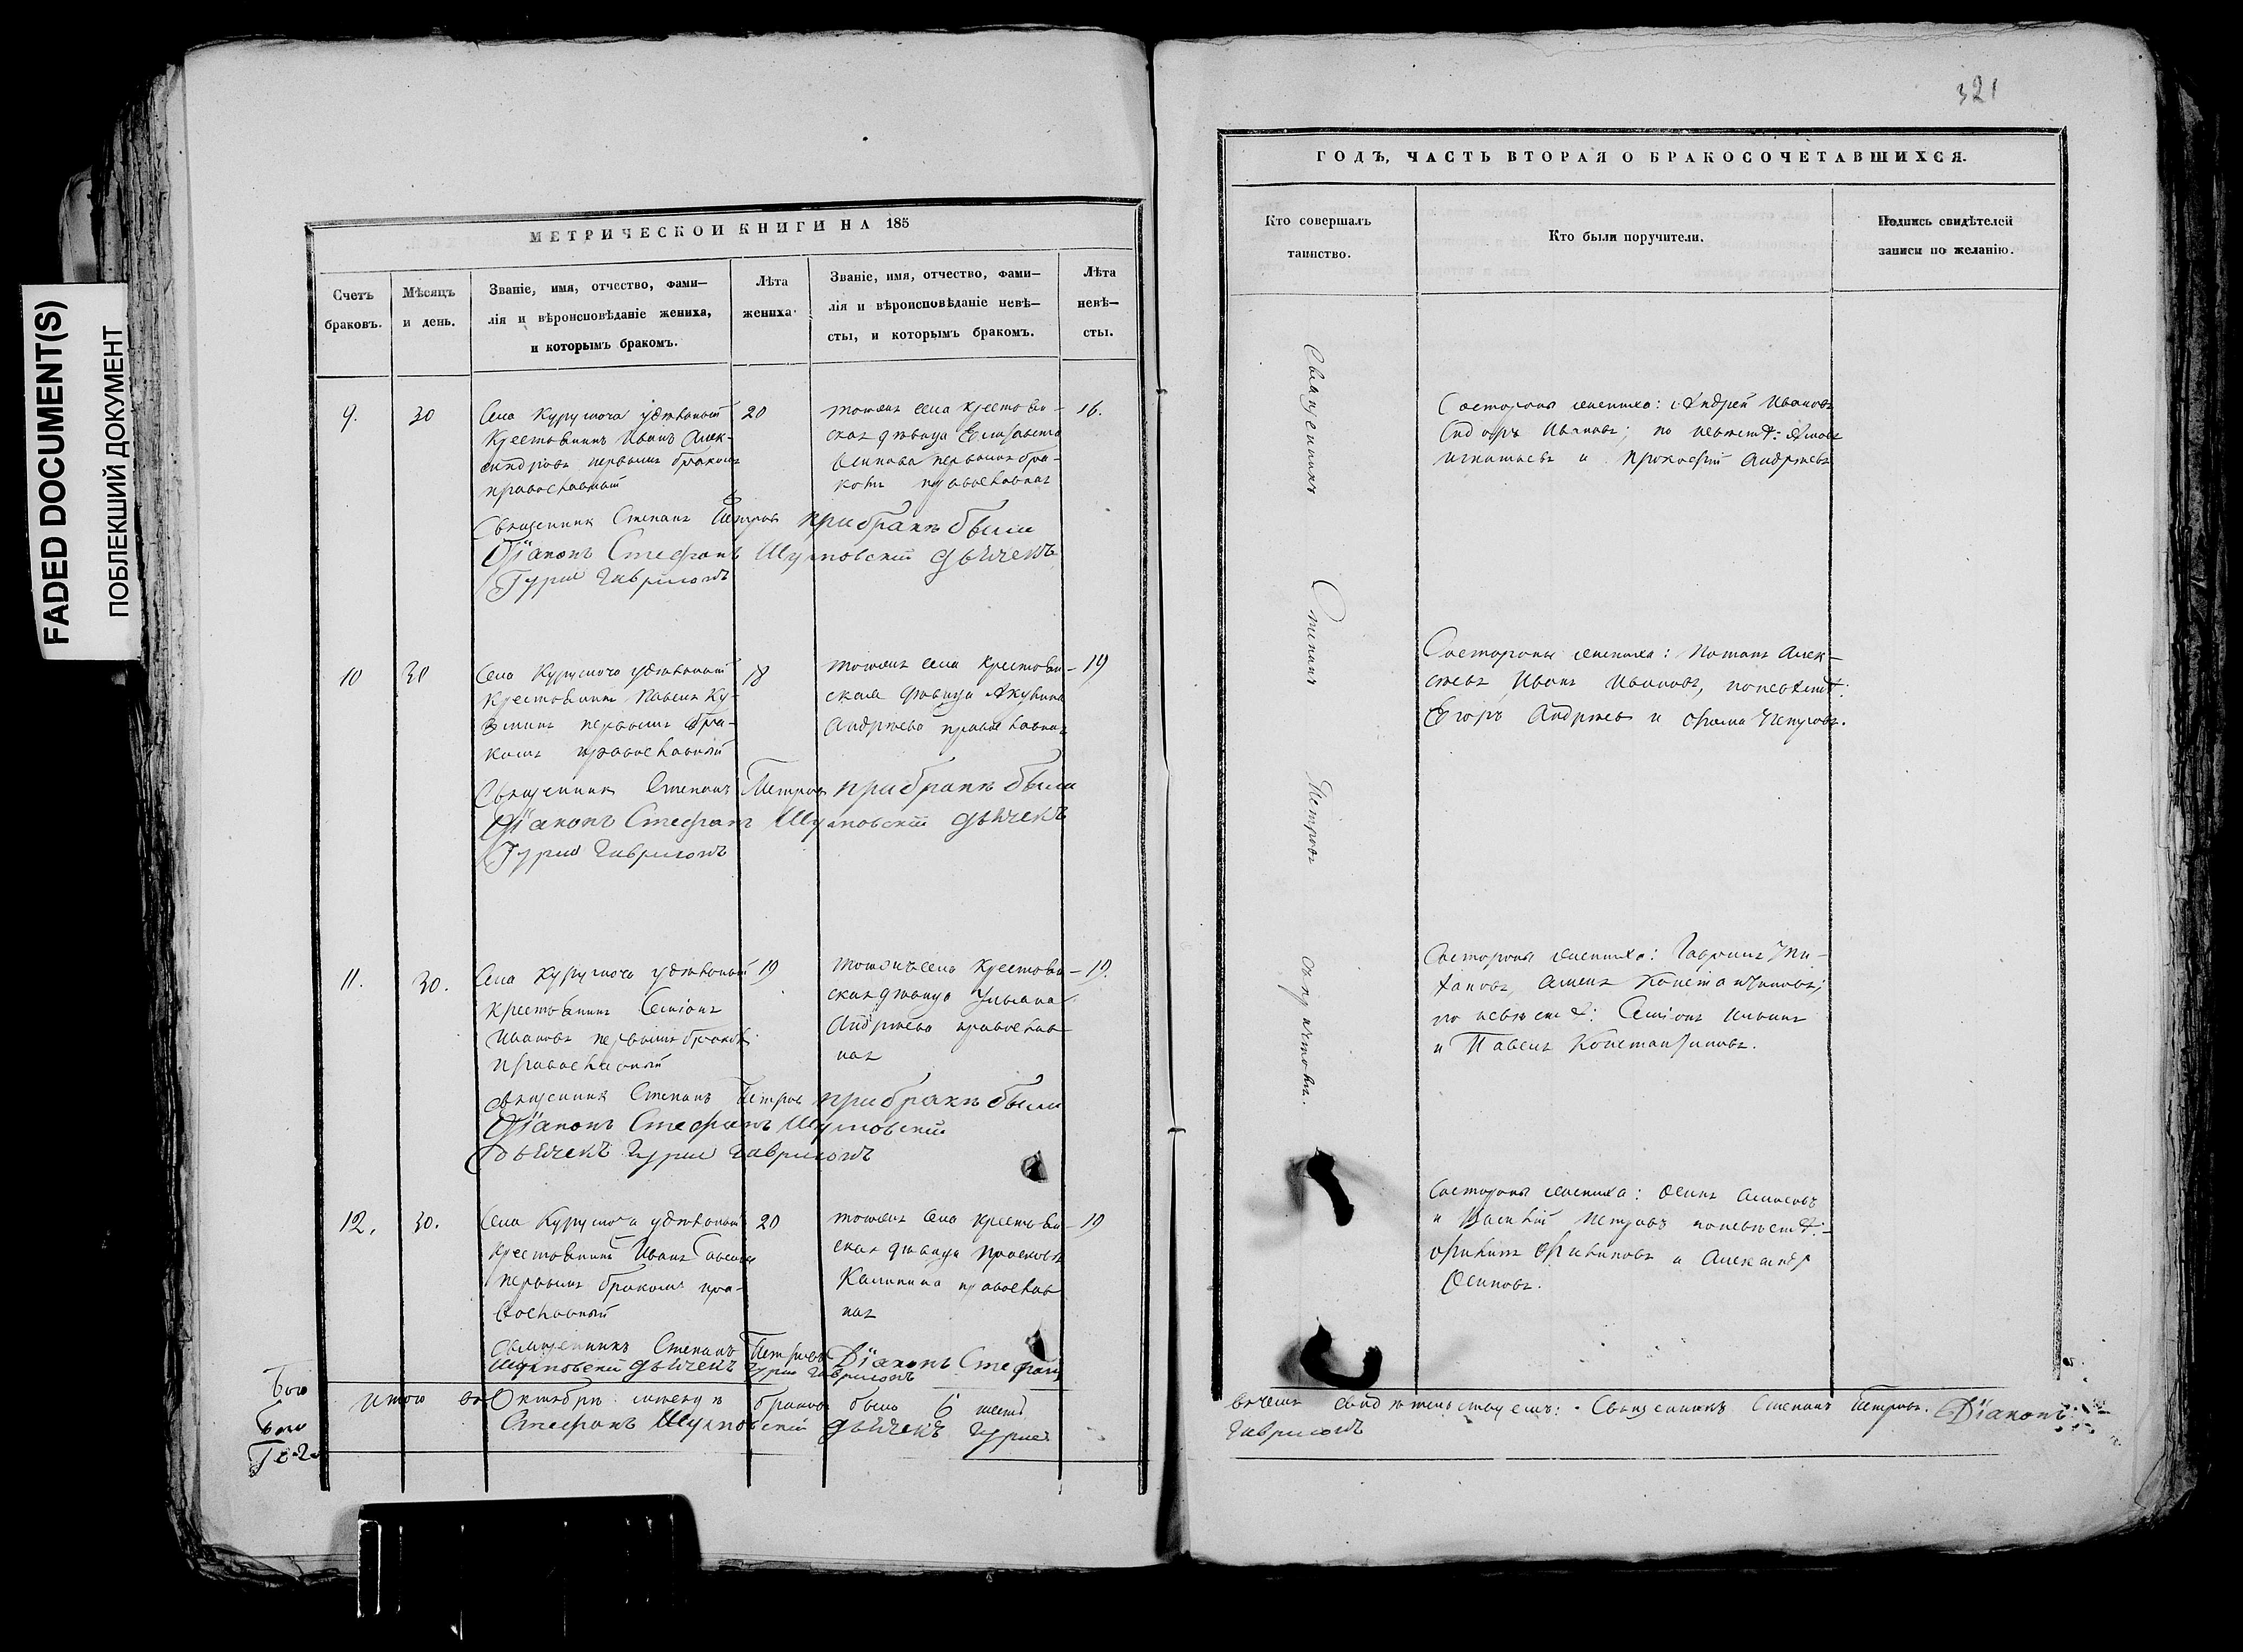 FADED DOCUMENT(S)
ПОБЛЕКШИЙ ДОКУМЕНТ
МЕТРИЧЕСКОЙ КНИГИ НА 185
Счетъ
браковъ.
Мѣсяцъ
и день.
Званіе, имя, отчество, фами—
лія и вѣроисповѣданіе жениха,
и которымъ бракомъ.
Лѣта
жениха.
Званіе, имя, отчество, фами—
лія и вѣроисповѣданіе невѣ—
сты, и которымъ бракомъ.
Лѣта
невѣ—
сты.
9.
30
Села Курумоча удѣльный
Крестьянинъ Иванъ Алек-
сандровъ первымъ бракомъ
православный
20
тогожъ села крестьян-
ская дѣвица Елисавета
Осипова первымъ бра-
комъ православная
16.
Священник Степанъ Петров при бракѣ были
Діаконъ Стефанъ дьячекъ
Гурий Гаврилов
10
30
Села Курумоча удѣльный
Крестьянинъ Павелъ Ку-
зминъ первымъ бра-
комъ православный
18
тогожъ села крестьян-
ская дѣвица Акулина
Андрѣева православная
19
Священник Степанъ Петров при бракѣ были
Діаконъ Стефанъ дьячекъ
Гурий Гаврилов
11.
30.
Села Курумоча удѣльный
крестьянинъ Семіонъ
Ивановъ первымъ бракомъ
православный
19
тогожъ села крестьян-
ская дѣвица Ульяна
Андрѣева православ
ная
19.
священник Степанъ Петров при бракѣ были
Діаконъ Стефанъ
дьячекъ Гурий Гаврилов
12.
30.
Села Курумоча удѣльный
крестьянинъ Иванъ
первымъ бракомъ пра-
вославный
20
тогожъ села крестьян-
ская дѣвица Прасковья
Калинина православ
ная
19
священникъ Степанъ Петровъ Діаконъ Стефанъ
дьячекъ Гурий Гаврилов
Итого въ Октябрѣ месецѣ браков было 6 шесть
Стефанъ дьячекъ Гурий
321
ГОДЪ, ЧАСТЬ ВТОРАЯ О БРАКОСОЧЕТАВШИХСЯ.
Кто совершалъ
таинство.
Кто были поручители.
Подпись свидѣтелей
записи по желанію.
Священникъ Степанъ Петровъ съ причтомъ.
Состороны жениха: Андрей Ивановъ
Сидоръ Ивановъ; по невѣстѣ:
Игнатьевъ и Прокофій Андрѣевъ
Состороны жениха: Потапъ Алек-
сѣевъ Иванъ Ивановъ, по невѣстѣ:
Егоръ Андрѣев и Фома Петровъ.
Состороны жениха:
Константиновъ;
по невѣстѣ: Семіонъ Ильинъ
и Павелъ Константиновъ.
Состороны жениха: Осипъ
и Василій Петровъ по невѣстѣ:
и Александръ
Осиповъ.
въ чемъ свидѣтельствуемъ: Священникъ Степанъ Петровъ. Діаконъ
Гаврилов